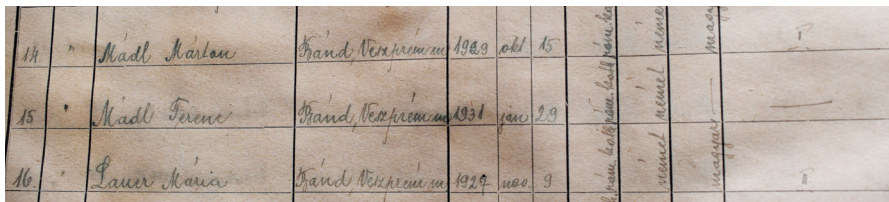 14. " Mádl Márton Bánd, Veszprém m 1929 okt 15 róm. kath német magyar "
15 " Mádl Ferenc Bánd, Veszprém m 1931 ján 29 róm. kath német német magyar —
16. " Lauer Mária Bánd, Veszprém m 1927 nov. 9 róm. kath német német magyar "